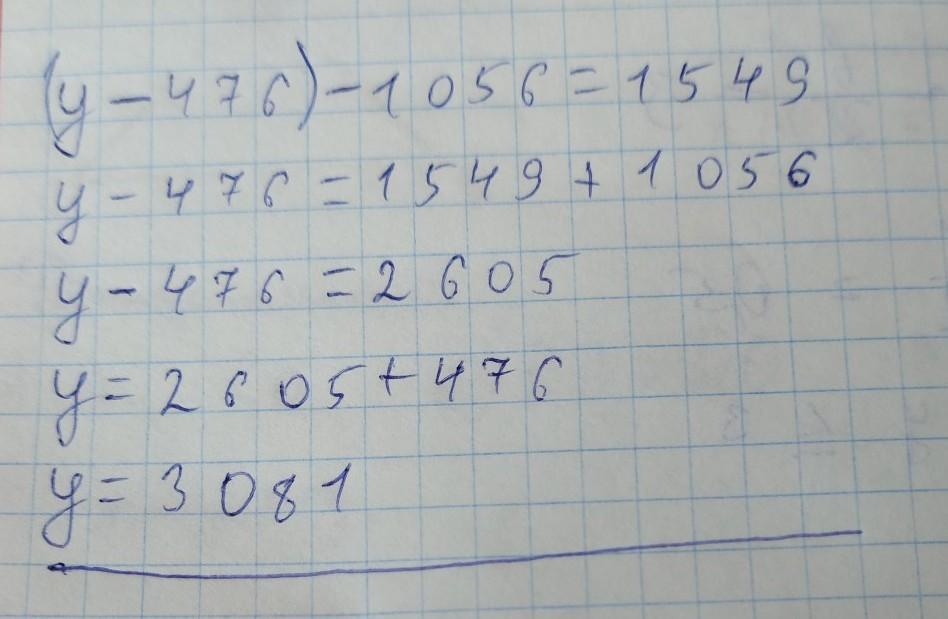 (y - 476) - 1056 = 1549
y - 476 = 1549 + 1056
y - 476 = 2605
y = 2605 + 476
y = 3081